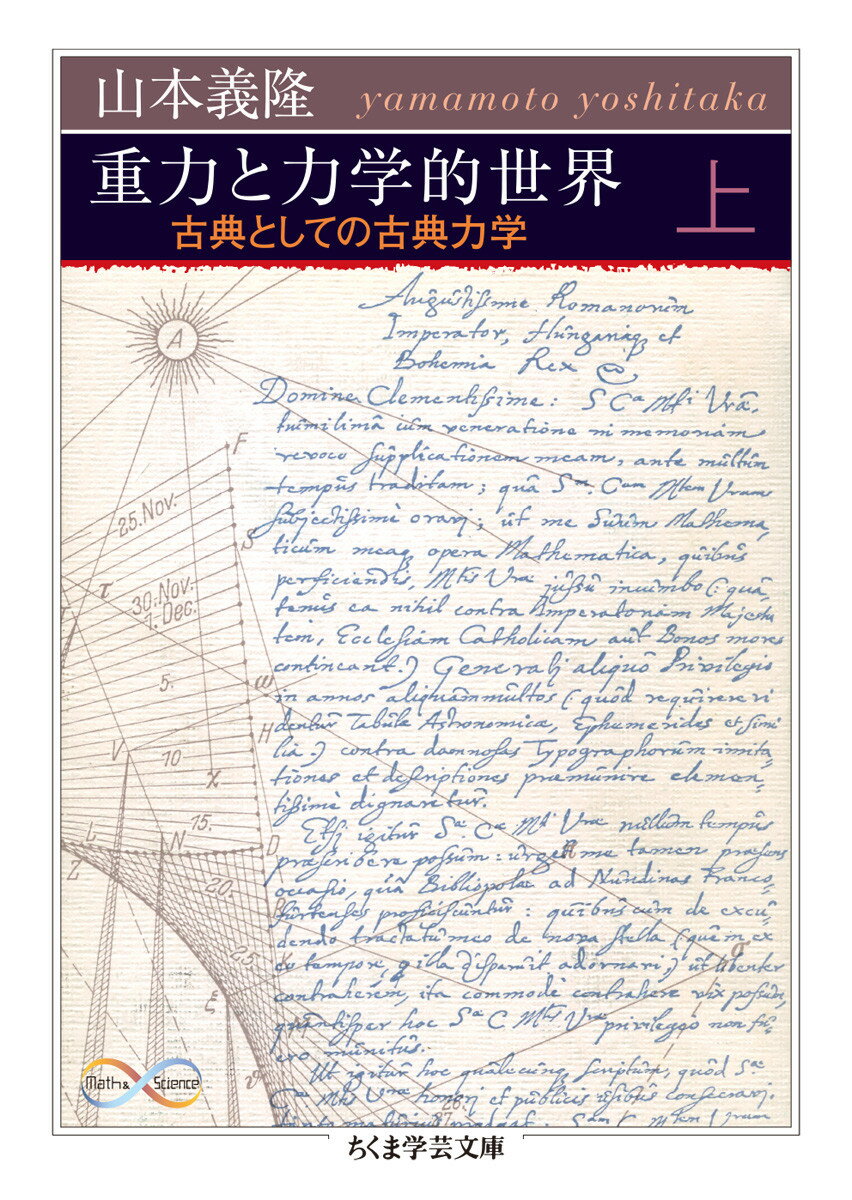 山本義隆 yamamoto yoshitaka
重力と力学的世界 上
古典としての古典力学
Augustissime Romanorum
Imperator, Hungariaq et
Bohemia Rex
Domine Clementissime: S Cᵃ Mᵗⁱ Vræ.
humilimâ cum veneratione in memoriam
revoco supplicationem meam, ante multum
tempus traditam; quâ Sᵐ. Cᵃᵐ Mᵗᵉᵐ Vram
subjectissimè oravj; ut me Suum Mathema,
ticum meaq opera Mathematica, quibus
perficiendis, Mᵗⁱˢ Vræ jussu incumbo (: qua,
tenus ea nihil contra Imperatoriam Majesta
tem, Ecclesiam Catholicam aut Bonos mores
contineant.) Generalj aliquo Privilegio
in annos aliquammultos (quod requirere vi
dentur Tabulæ Astronomicæ, Ephemerides et simi
lia) contra damnosas Typographorum imita,
tiones et descriptiones præmunire clemen,
tissimè dignaretur.
Etsi igitur Sᵃᵉ Cᵃᵉ Mᵗⁱ Vræ nullum tempus
præscribere possum: urget me tamen præsens
occasio, quâ Bibliopolæ ad Nundinas Franco,
furtenses proficiscuntur: quibus cum de excu,
dendo tractatu meo de nova stella (quem ex
eo tempore, q illa disparuit adornavi,) ut libenter
contraherem, ita commodè contrahere vix possum,
quantisper hoc Sᵃᵉ C Mᵗⁱˢ Vræ privilegio non fu,
ero munitus.
Ut igitur hoc qualecunq scriptum, quod Sᵃᵉ
Cᵃᵉ Mᵗⁱˢ Vræ honorj et publicis usibus consecravj.
Sᵃᵐ Cᵃᵐ Mᵗᵉᵐ Vram
A
F
25.Nov.
S
τ
30.Nov.
1.Dec.
5.
ω
H
V
10
χ
15.
L
N
D
Z
20.
25.
K
ξ
σ
ϑ
26.
27.
Math & Science
ちくま学芸文庫